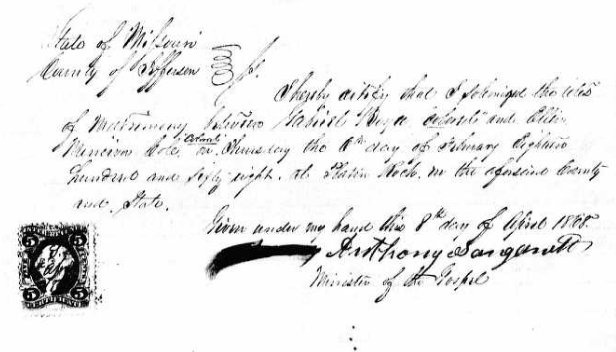 State of Missouri
County of Jefferson } ss.
I hereby certify that I solemnized the rites
of Matrimony between Gabriel colord and
colord
on Thursday the 6th day of February Eighteen
hundred and sixty eight. at Plattin Rock. in the aforesaid County
and State.
Given under my hand this 8th day of April 1868.
Anthony
Minister of the Gospel
5 5
5 5